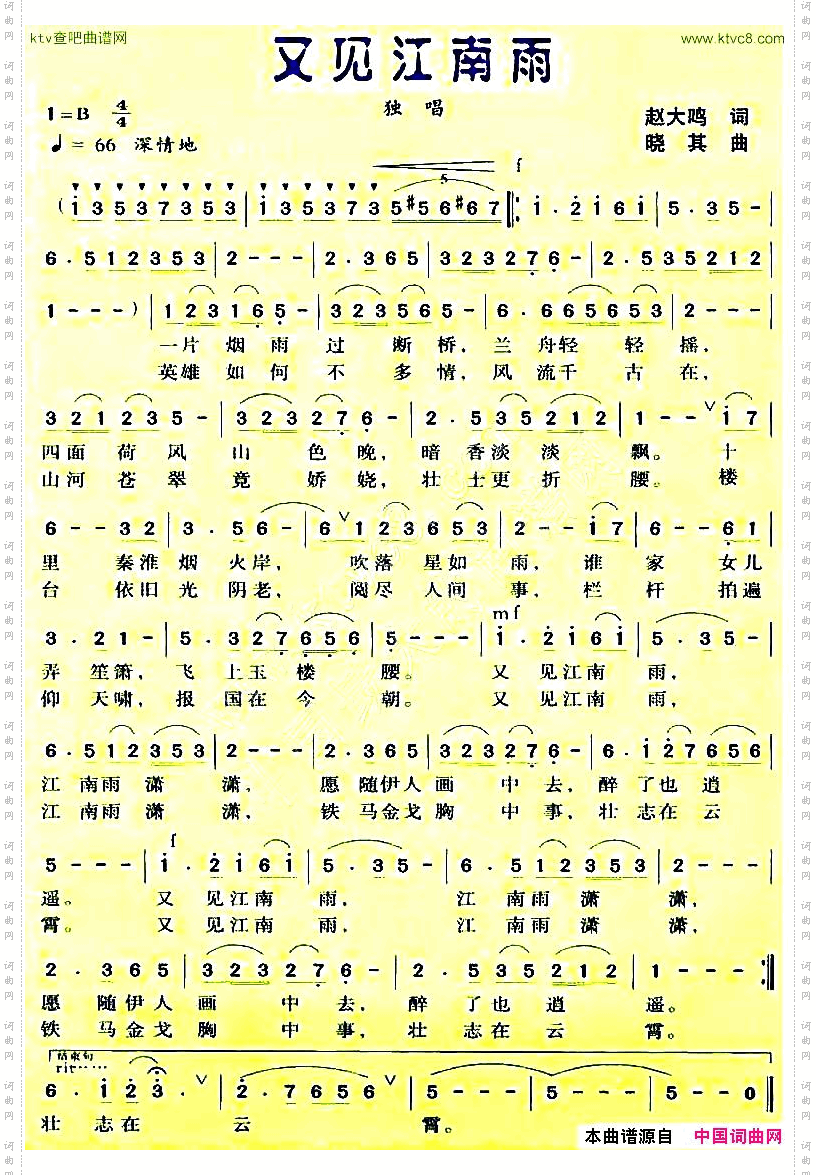 ktv查吧曲谱网
www.ktvc8.com
又见江南雨
1=B 4/4
独唱
赵大鸣 词
♩= 66 深情地
晓其 曲
f
5
(i3537353 | i353735#56#67 ‖: i·2i6i | 5·35- |
6·512353 | 2--- | 2·365 | 323276- | 2·535212 |
1---) | 123165- | 323565- | 6·665653 | 2--- |
一片烟雨过断桥，兰舟轻轻摇，
英雄如何不多情，风流千古在，
321235- | 323276- | 2·535212 | 1--∨i7 |
四面荷风山色晚，暗香淡淡飘。十
山河苍翠竟娇娆，壮士更折腰。楼
6--32 | 3·56- | 6∨123653 | 2--i7 | 6--61 |
里秦淮烟火岸，吹落星如雨，谁家女儿
台依旧光阴老，阅尽人间事，栏杆拍遍
mf
3·21- | 5·327656 | 5--- | i·2i6i | 5·35- |
弄笙箫，飞上玉楼腰。又见江南雨，
仰天啸，报国在今朝。又见江南雨，
6·512353 | 2--- | 2·365 | 323276- | 6·127656 |
江南雨潇潇，愿随伊人画中去，醉了也逍
江南雨潇潇，铁马金戈胸中事，壮志在云
f
5--- | i·2i6i | 5·35- | 6·512353 | 2--- |
遥。又见江南雨，江南雨潇潇，
霄。又见江南雨，江南雨潇潇，
2·365 | 323276- | 2·535212 | 1--- :‖
愿随伊人画中去，醉了也逍遥。
铁马金戈胸中事，壮志在云霄。
结束句
rit……
6·123·∨ | 2·7656∨ | 5--- | 5--- | 5--0 ‖
壮志在云霄。
本曲谱源自 中国词曲网
词曲网